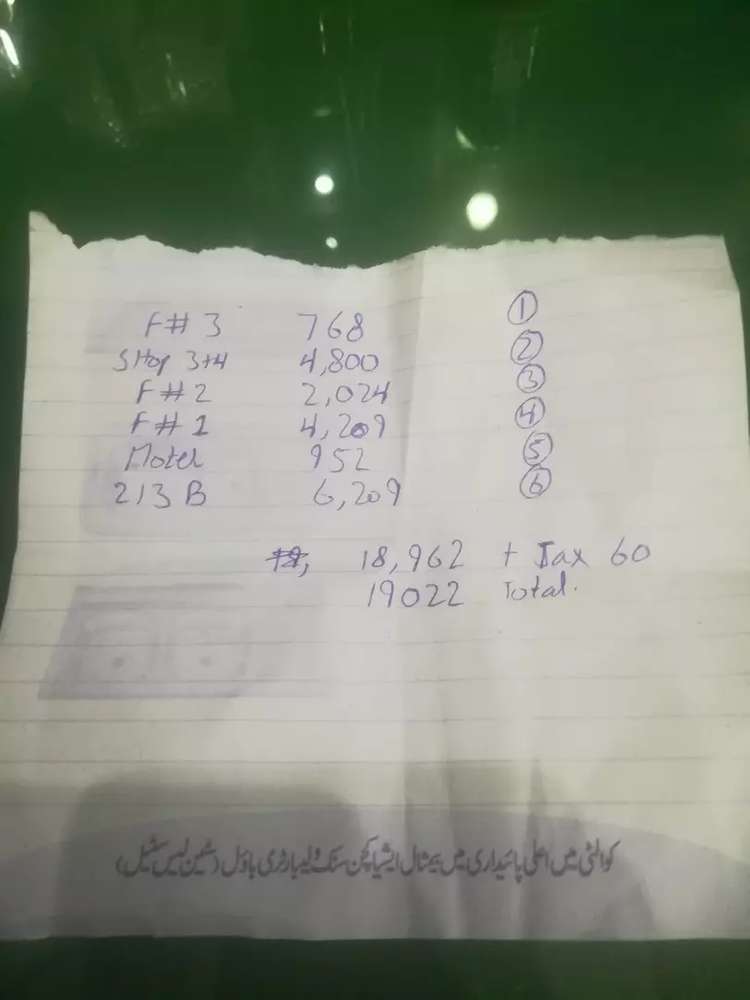 F# 3 768 ①
SHop 3+4 4,800 ②
F# 2 2,024 ③
F# 1 4,209 ④
Motel 952 ⑤
213 B 6,209 ⑥
18,962 + Tax 60
19022 Total.
کوالٹی میں اعلیٰ پائیداری میں بے مثال ایشیا کچن سنک و لیبارٹری باؤل (سٹین لیس سٹیل)